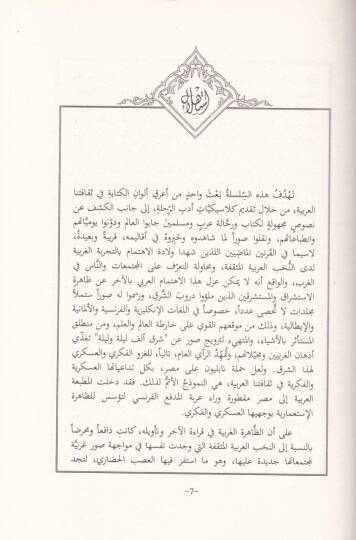 استهلال
تَهْدُفُ هذه السِّلسلةُ بَعْثَ واحدٍ من أعرقِ ألوانِ الكتابةِ في ثقافتنا
العربية، من خلال تقديم كلاسيكيّاتِ أدبِ الرِّحلة، إلى جانب الكشف عن
نصوصٍ مجهولةٍ لكتاب ورحّالة عربٍ ومسلمين جابوا العالم ودوّنوا يوميَّاتهم
وانطباعاتهم، ونقلوا صوراً لما شاهدوه وخبروهُ في أقاليمه، قريبةً وبعيدةً،
لاسيما في القرنين الماضيين اللذين شهدا ولادة الاهتمام بالتجربة الغربية
لدى النُّخب العربية المثقفة، ومحاولة التعرّف على المجتمعات والنَّاس في
الغرب، والواقع أنه لا يمكن عزل هذا الاهتمام العربي بالآخر عن ظاهرة
الاستشراق والمستشرقين الذين ملؤوا دروبَ الشَّرق، ورسموا له صوراً ستملأ
مجلدات لا تُحصى عدداً، خصوصاً في اللغات الإنكليزية والفرنسية والألمانية
والإيطالية، وذلك من موقعهم القوي على خارطة العالم والعلم، ومن منطلق
المستأثر بالأشياء، والمتهيء لترويج صور عن "شرق ألف ليلة وليلة" تغذّي
أذهان الغربيين ومخيّلاتهم، وتُمهِّدُ الرأي العام، تالياً، للغزو الفكري والعسكري
لهذا الشرق. ولعل حملة نابليون على مصر، بكل تداعياتها العسكرية
والفكرية في ثقافتنا العربية، هي النموذجُ الأتمُّ لذلك. فقد دخلت المطبعة
العربية إلى مصر مقطورة وراء عربة المدفع الفرنسي لتؤسس للظاهرة
الإستعمارية بوجهيها العسكري والفكري.
على أن الظَّاهرة الغربية في قراءة الآخر وتأويله، كانت دافعاً ومحرضاً
بالنسبة إلى النخب العربية المثقفة التي وجدت نفسها في مواجهة صور غربيَّة
لمجتمعاتها جديدة عليها، وهو ما استفز فيها العصب الحضاري، لتجد
-7-